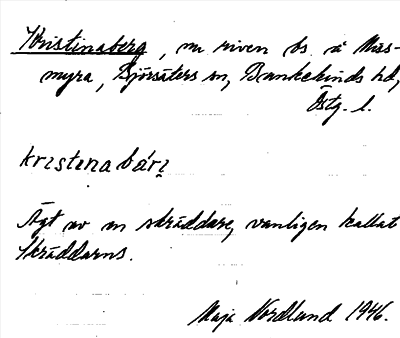 Kristinaberg, nu riven bs. å Mas-
myra, Björsäters sn, Bankekinds hd,
Östg. l.
kristinabärj
Ägt av en skräddare, vanligen kallat
Skräddarns.
Maja Nordlund 1946.